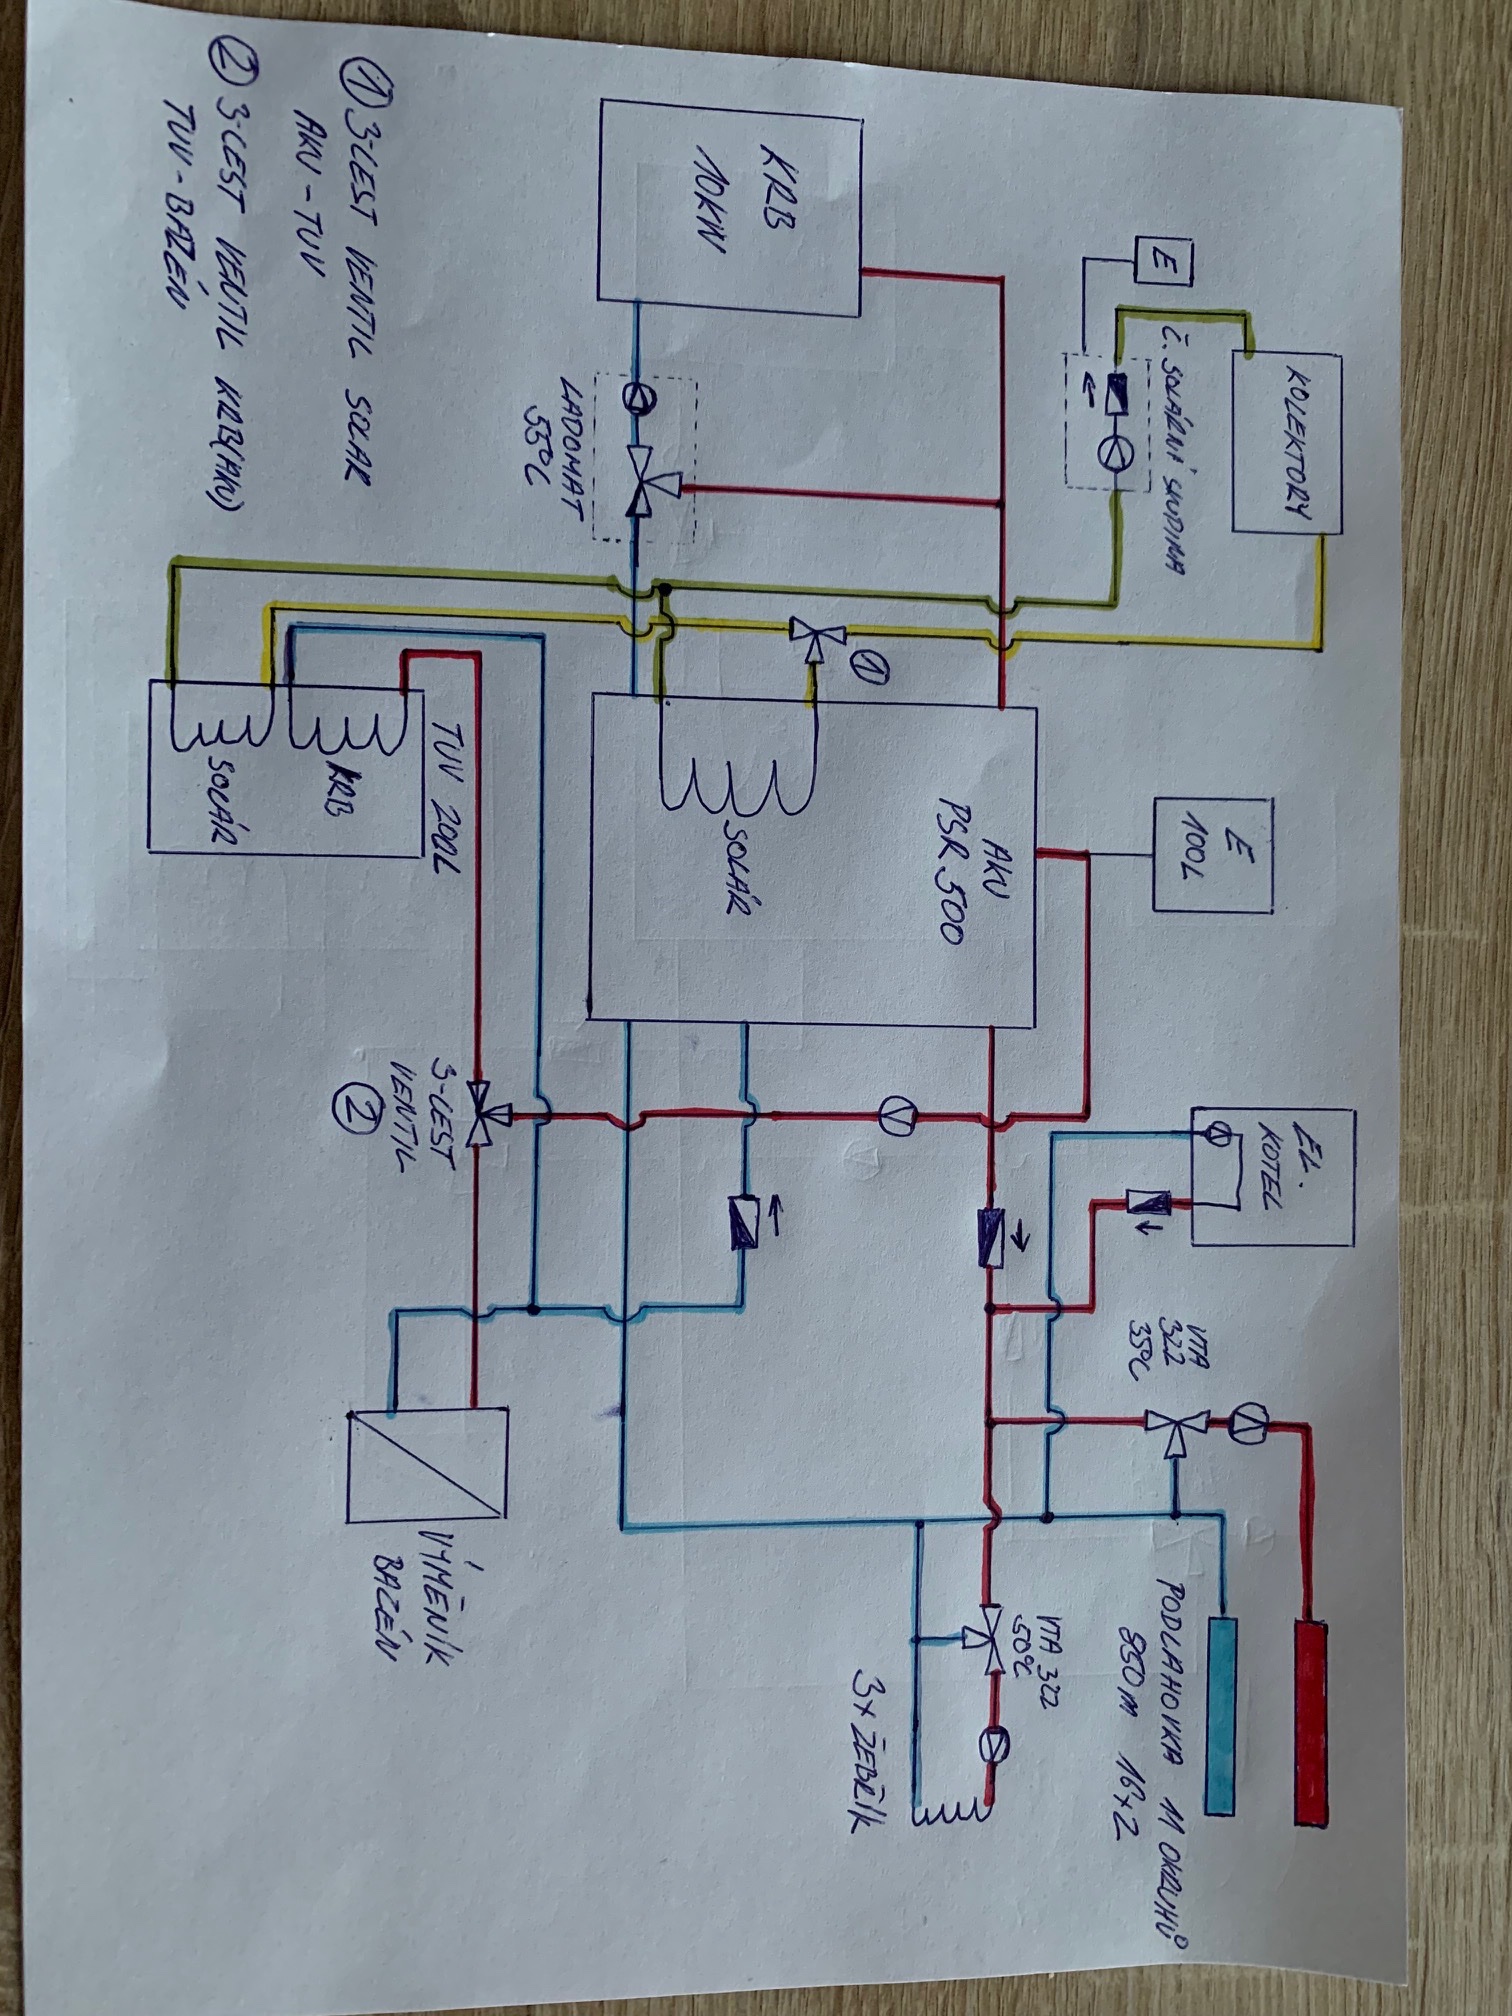 KOLEKTORY
E
Č. SOLÁRNÍ SKUPINA
KRB
10KW
LADOMAT
55°C
①
E
100L
AKU
PSR 500
SOLÁR
TUV 200L
KRB
SOLÁR
EL.
KOTEL
VTA
322
35°C
3-CEST
VENTIL
②
VTA 322
50°C
PODLAHOVKA 11 OKRUHŮ
850m 16x2
3x ŽEBŘÍK
VÝMĚNÍK
BAZÉN
① 3-CEST VENTIL SOLAR
AKU - TUV
② 3-CEST VENTIL KRB(AKU)
TUV - BAZÉN